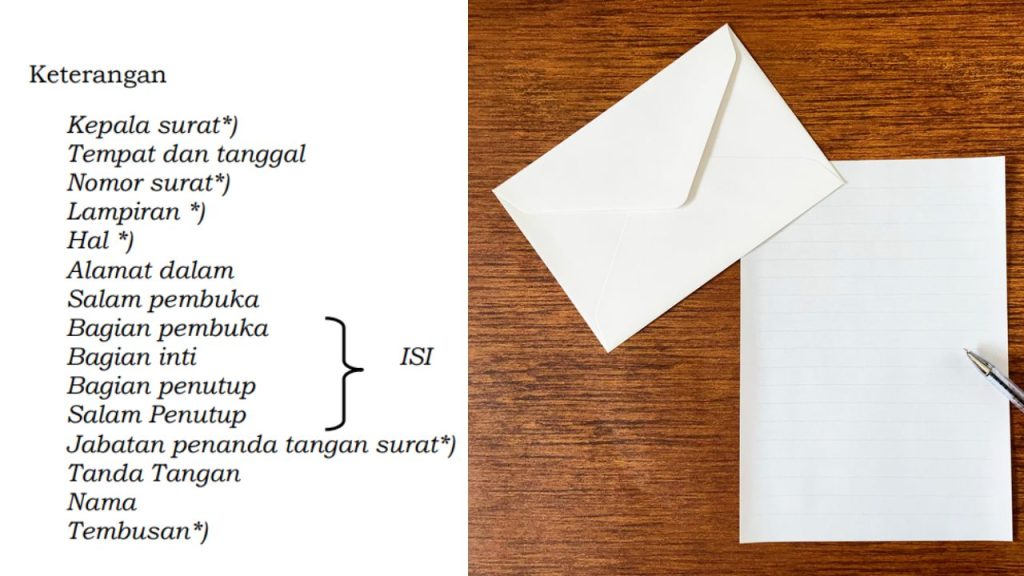 Keterangan
Kepala surat*)
Tempat dan tanggal
Nomor surat*)
Lampiran *)
Hal *)
Alamat dalam
Salam pembuka
Bagian pembuka
Bagian inti
ISI
Bagian penutup
Salam Penutup
Jabatan penanda tangan surat*)
Tanda Tangan
Nama
Tembusan*)